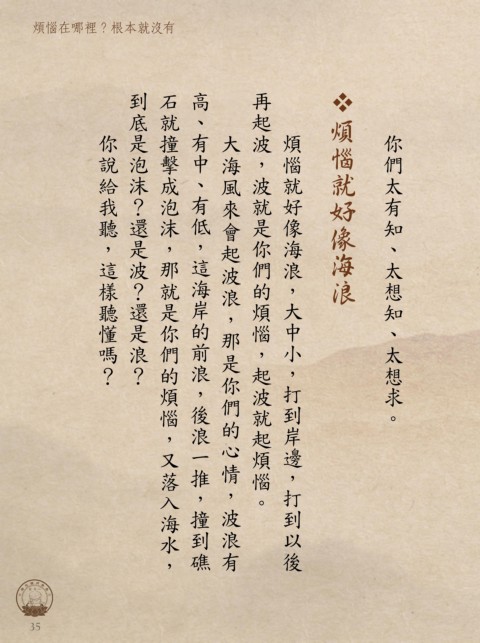 煩惱在哪裡？根本就沒有
你們太有知、太想知、太想求。
❖ 煩惱就好像海浪
煩惱就好像海浪，大中小，打到岸邊，打到以後
再起波，波就是你們的煩惱，起波就起煩惱。
大海風來會起波浪，那是你們的心情，波浪有
高、有中、有低，這海岸的前浪，後浪一推，撞到礁
石就撞擊成泡沫，那就是你們的煩惱，又落入海水，
到底是泡沫？還是波？還是浪？
你說給我聽，這樣聽懂嗎？
35